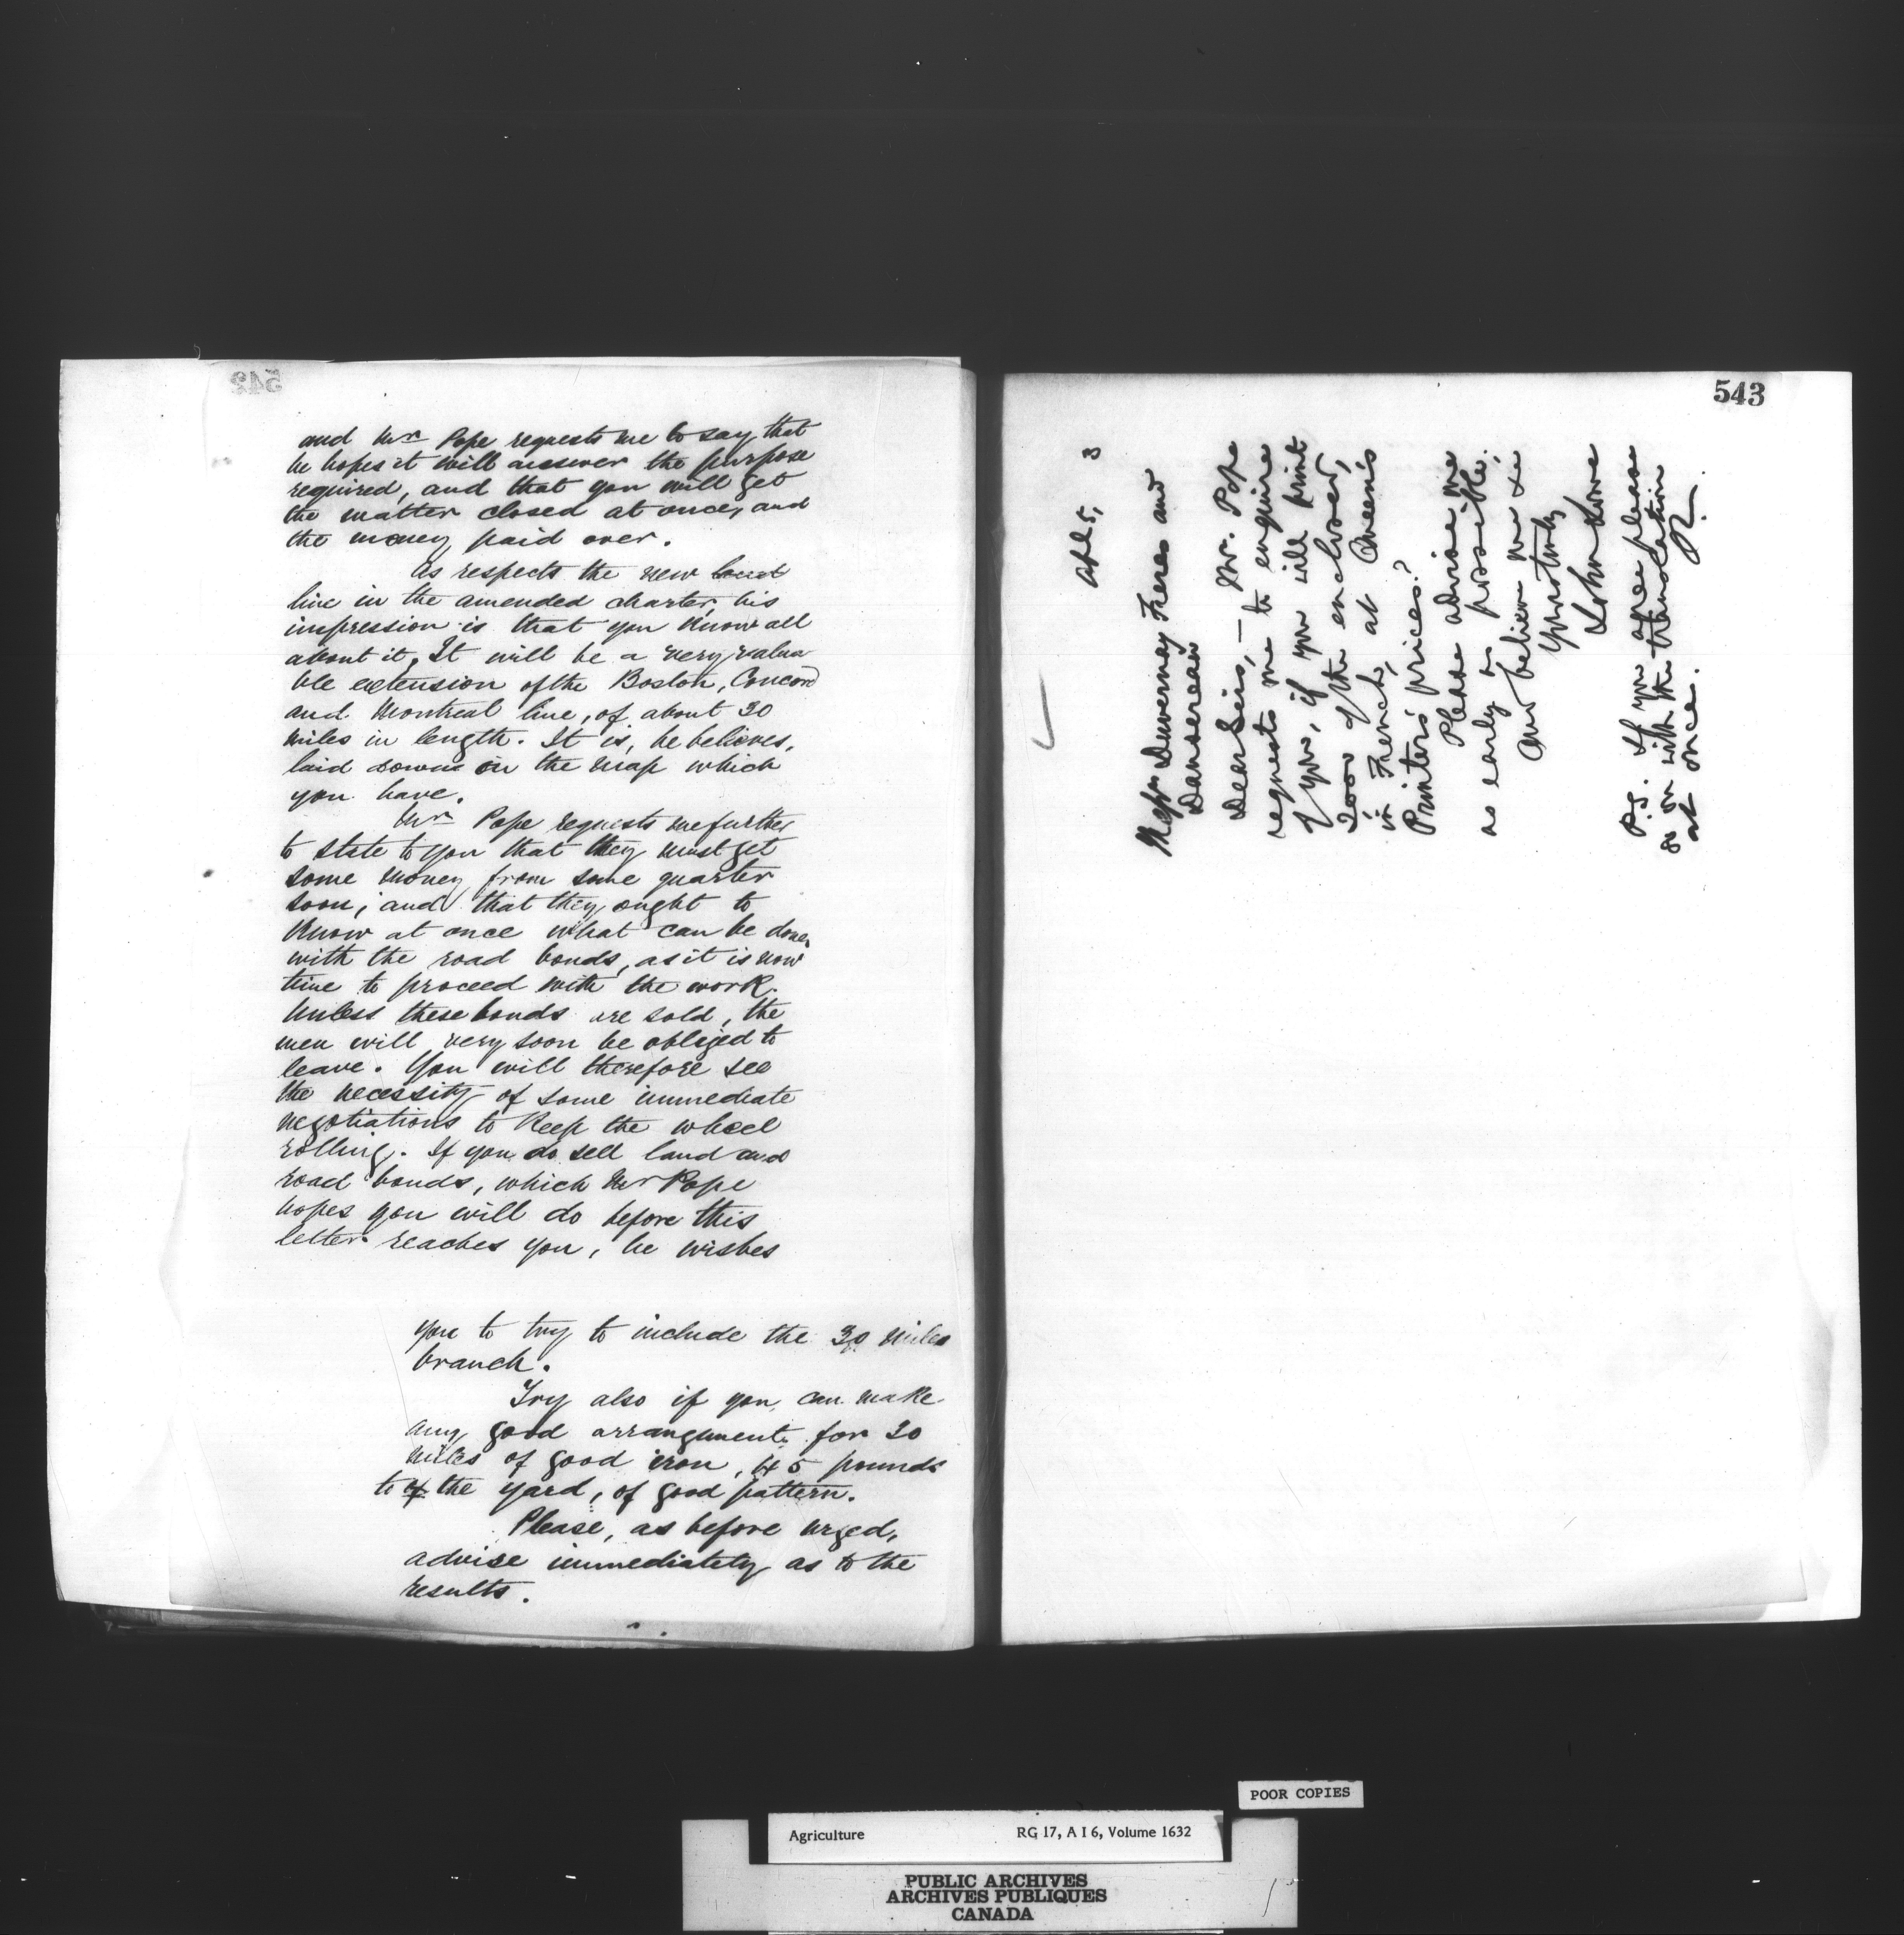 542
and Mr Pope requests me to say that
he hopes it will answer the purpose
required, and that you will get
the matter closed at once, and
the money paid over.
As respects the new
line in the amended charter, his
impression is that you know all
about it. It will be a very valua
ble extension of the Boston, Concord
and Montreal line, of about 30
miles in length. It is, he believes,
laid down on the map which
you have.
Mr Pope requests me further
to state to you that they must get
some money from some quarter
soon, and that they ought to
know at once what can be done
with the road bonds, as it is now
time to proceed with the work.
Unless these bonds are sold, the
men will very soon be obliged to
leave. You will therefore see
the necessity of some immediate
negotiations to keep the wheel
rolling. If you do sell land and
road bonds, which Mr Pope
hopes you will do before this
letter reaches you, he wishes
you to try to include the 30 miles
branch.
Try also if you can make
any good arrangements for 20
miles of good iron, 45 pounds
to of the yard, of good pattern.
Please, as before urged,
advise immediately as to the
results.
543
Apl 5, 3
Messrs Duvernay Freres and
Dansereau
Dear Sirs, — Mr. Pope
requests me to enquire
of you, if you will print
2000 of the enclosed,
in French, at Queen's
Printers' prices?
Please advise me
as early as possible;
and believe me to
Yrs truly
John Lowe
P.S. If you agree please
go on with the translation
at once. JL.
POOR COPIES
Agriculture RG 17, A I 6, Volume 1632
PUBLIC ARCHIVES
ARCHIVES PUBLIQUES
CANADA